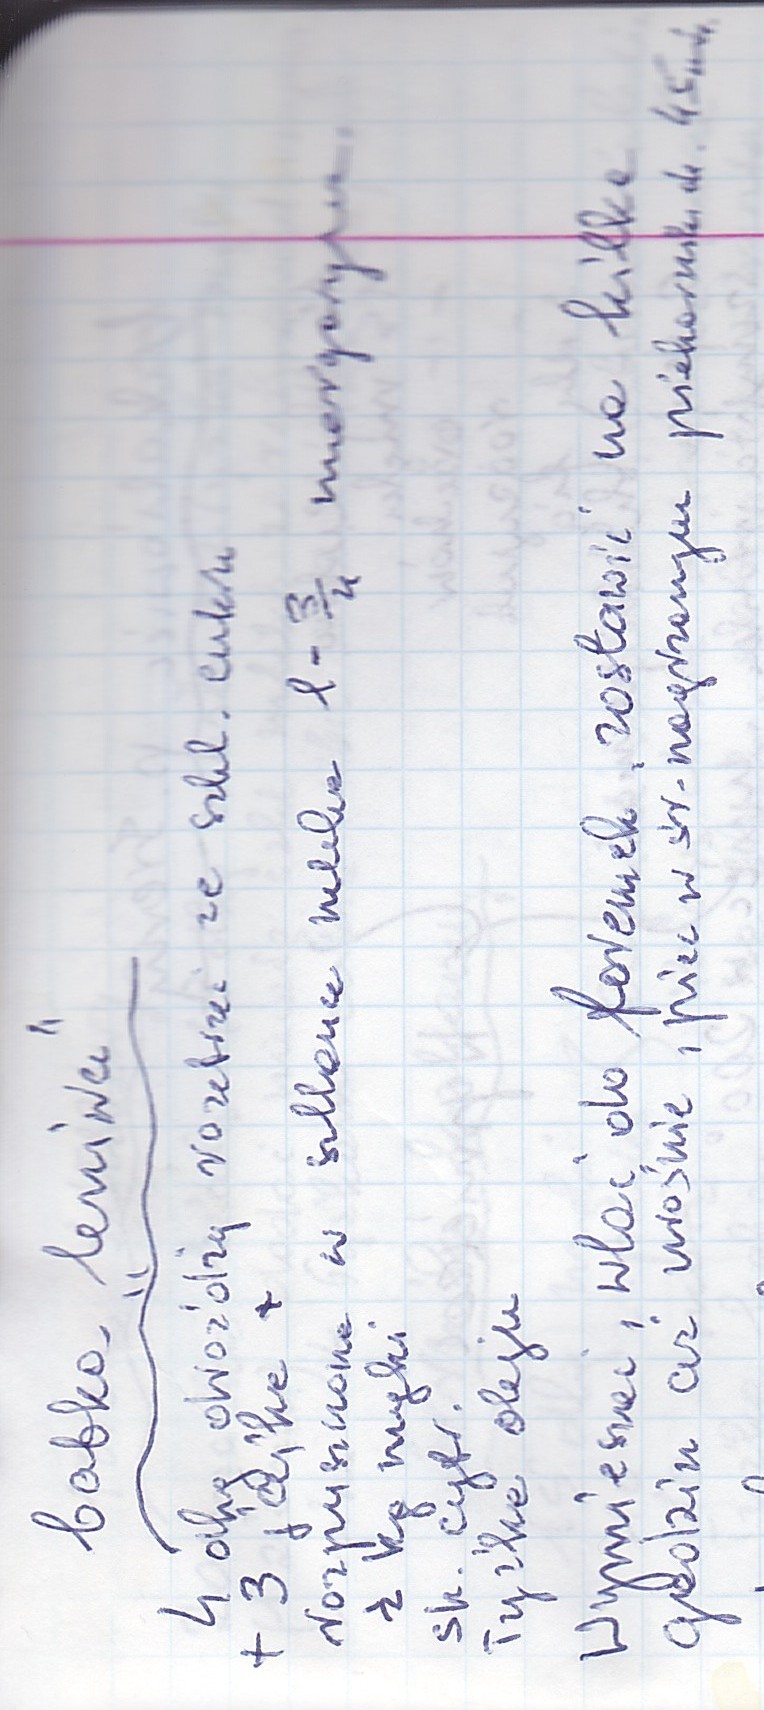 babka „leniwa"
4 dkg drożdży rozetrzeć ze szkl. cukru
+ 3 jajka +
rozpuszczona w szklance mleka 1 - 3/4 margaryna.
kg mąki
sk. cytr.
Łyżka oleju
Wymieszać, wlać do foremek, zostawić na kilka
godzin aż urośnie, piec w śr. nagrzanym piekarniku ok. 45 min.